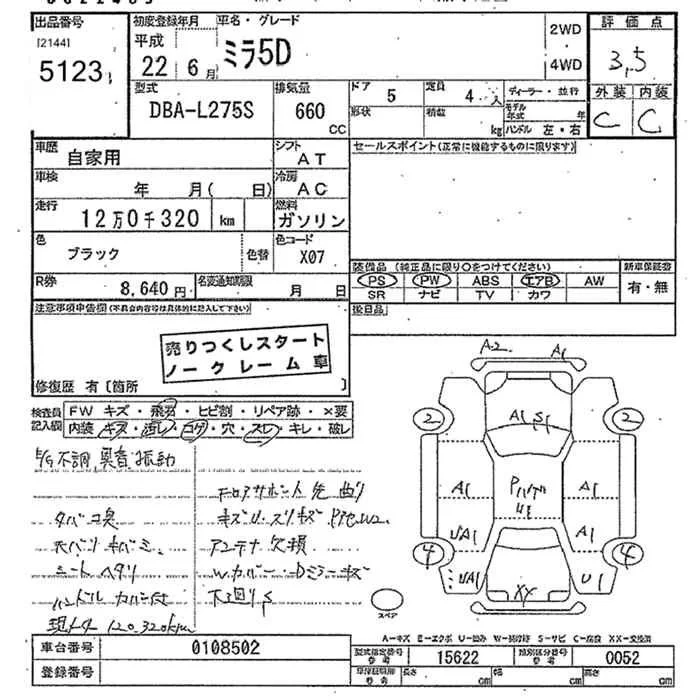 出品番号
[2144]
5123
初度登録年月
平成
22年 6月
車名・グレード
ミラ5D
2WD
・
4WD
評価点
3,5
外装 内装
C C
型式
DBA-L275S
排気量
660
CC
ドア 5
定員 4 人
形状
積載 kg
ディーラー・並行
モデル年式 年
ハンドル 左・右
車歴
自家用
シフト
AT
セールスポイント(正常に機能するものに限ります)
車検
年 月( 日)
冷房
AC
走行
12万0千320 km
燃料
ガソリン
色
ブラック
色替
色コード
X07
R券
8,640円
名変通知期限
月 日
装備品 (純正品に限り○をつけてください)
PS PW ABS エアB AW
SR ナビ TV カワ
新車保証書
有・無
後日品
注意事項申告欄(不具合内容等は具体的に記入して下さい)
売りつくしスタート
ノークレーム車
修復歴 有〔箇所 〕
検査員記入欄
FW キズ・飛石・ヒビ割・リペア跡・×要
内装 キズ・汚レ・コゲ・穴・スレ・キレ・破レ
不調,異音 振動
タバコ臭
シートヘタリ
ハンドルカバー付
現メータ 120,320km
フロアサポート先曲り
アンテナ欠損
下廻りS
A2
A1
2
2
A1 S1
A1
A1
UA1
A1
4
4
UA1
U1
XX
スペア
A-キズ E-エクボ U-凹み W-補修跡 S-サビ C-腐食 XX-交換済
車台番号
0108502
登録番号
型式指定番号
参考
15622
類別区分番号
参考
0052
参考
長さ cm
幅 cm
高さ cm